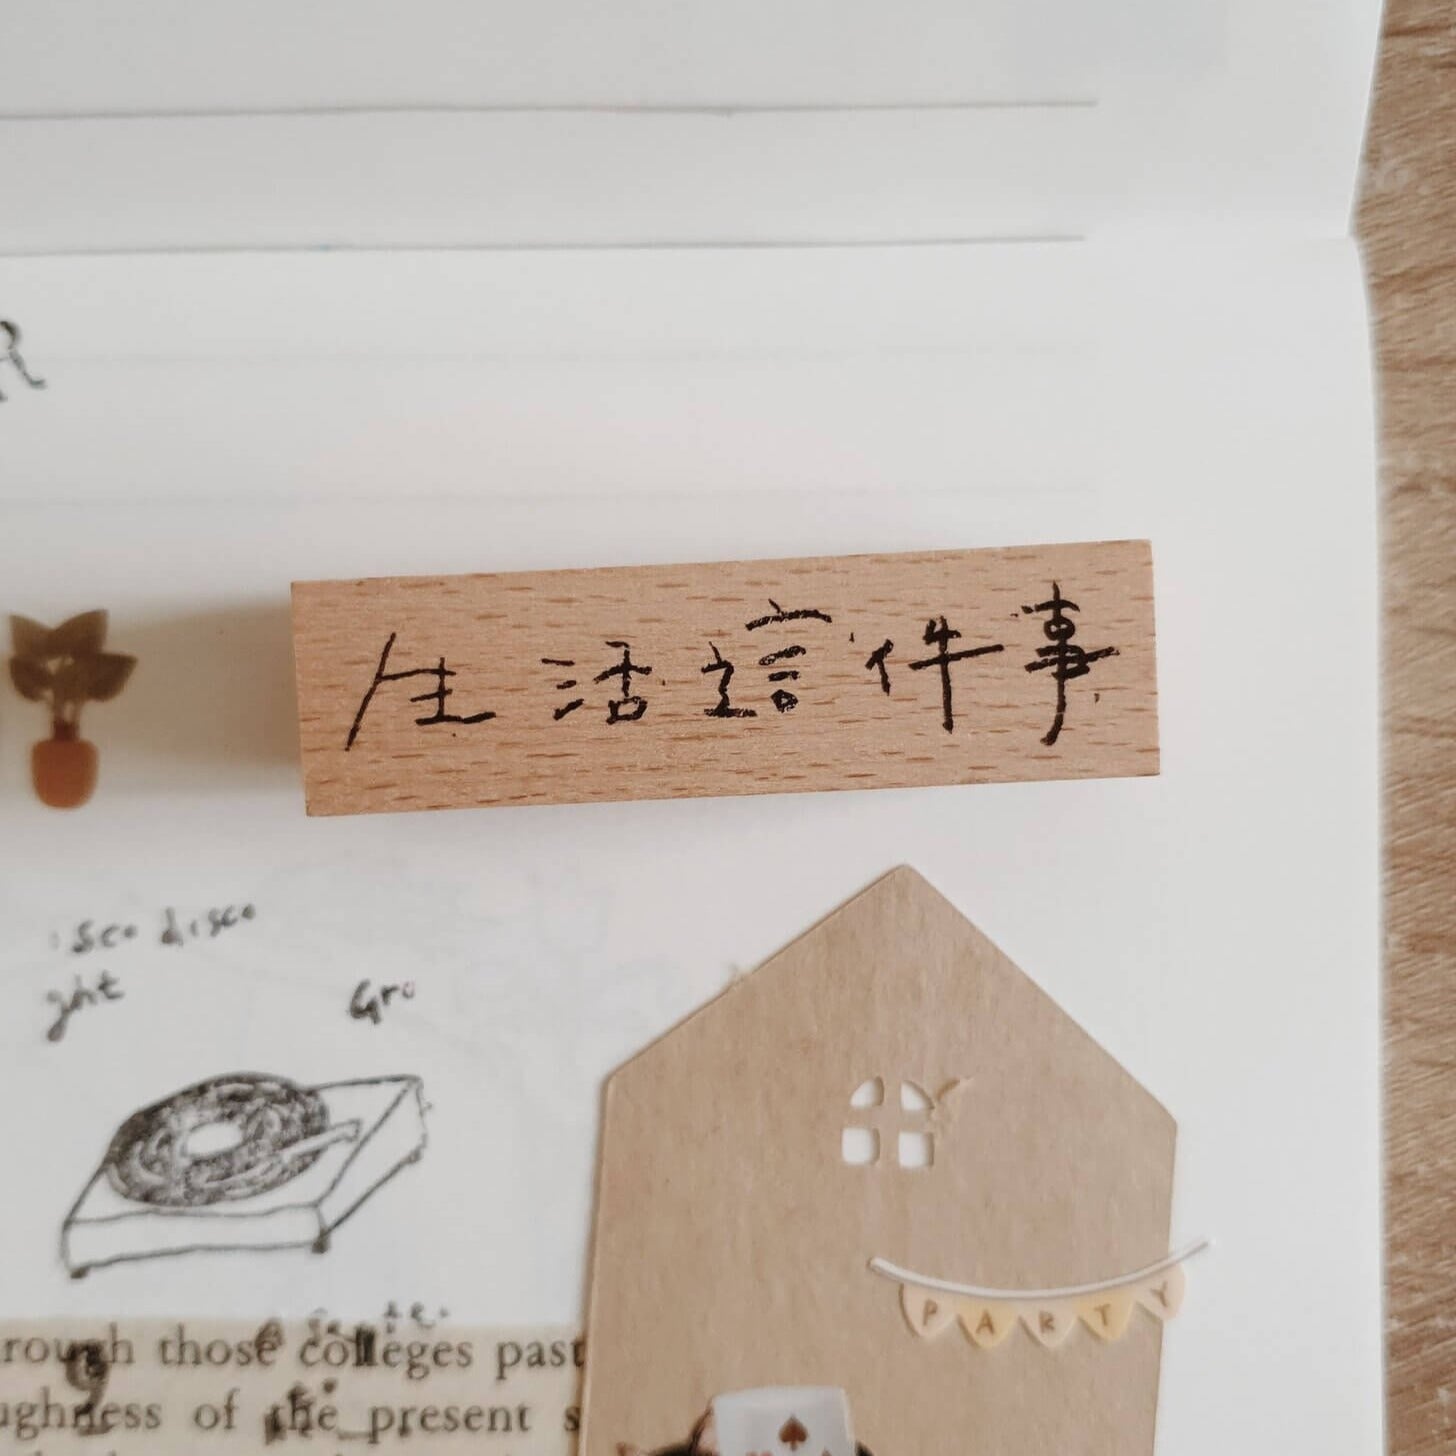 R
生活這件事
isco disco
ght
Gro
PARTY
rough those colleges past
ughness of the present s